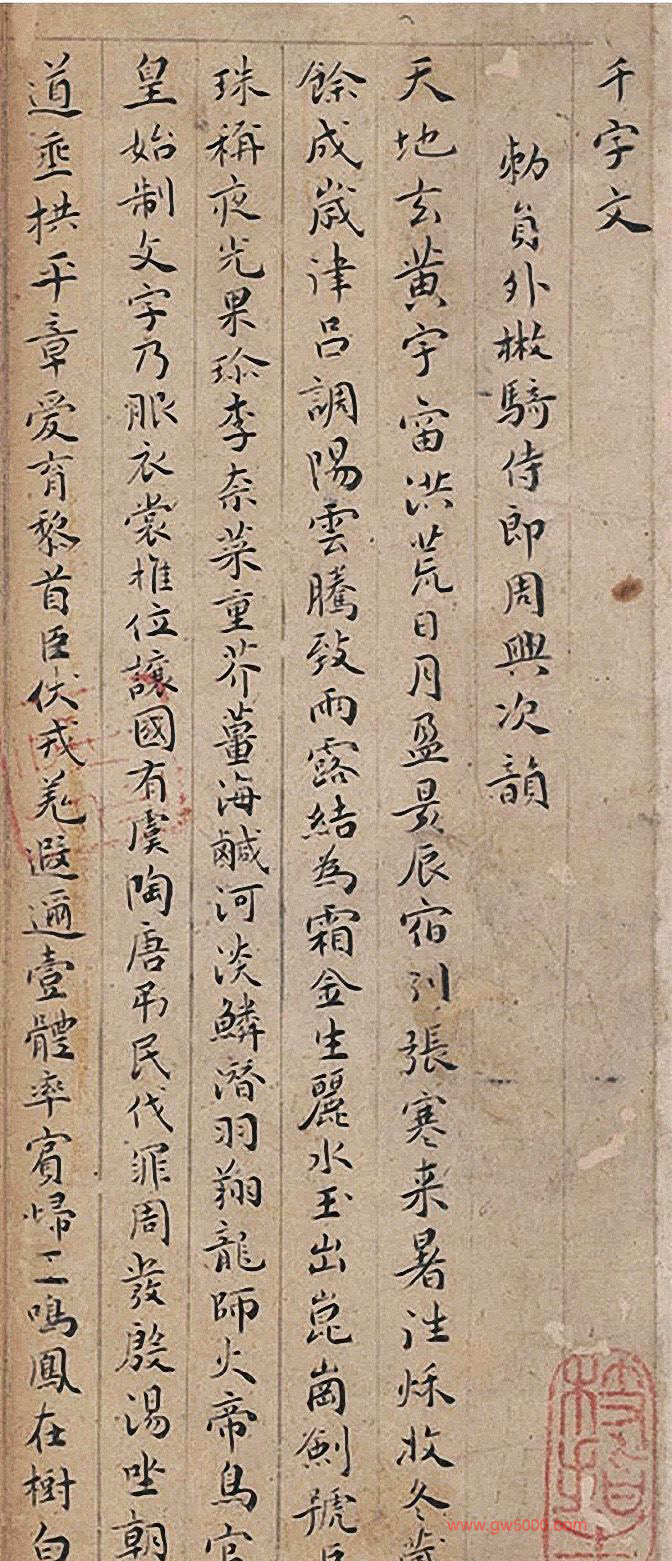 千字文
勑員外散騎侍郎周興次韻
天地玄黃宇宙洪荒日月盈昃辰宿列張寒来暑往秌收冬藏
餘成嵗律呂調陽雲騰致雨露結為霜金生麗水玉出崑崗劍號巨
珠稱夜光果珎李柰菜重芥薑海鹹河淡鱗潛羽翔龍師火帝鳥官
皇始制文字乃服衣裳推位讓國有虞陶唐弔民伐罪周發殷湯坐朝
道垂拱平章愛育黎首臣伏戎羌遐邇壹體率賓歸王鳴鳳在樹白
www.gw5000.com